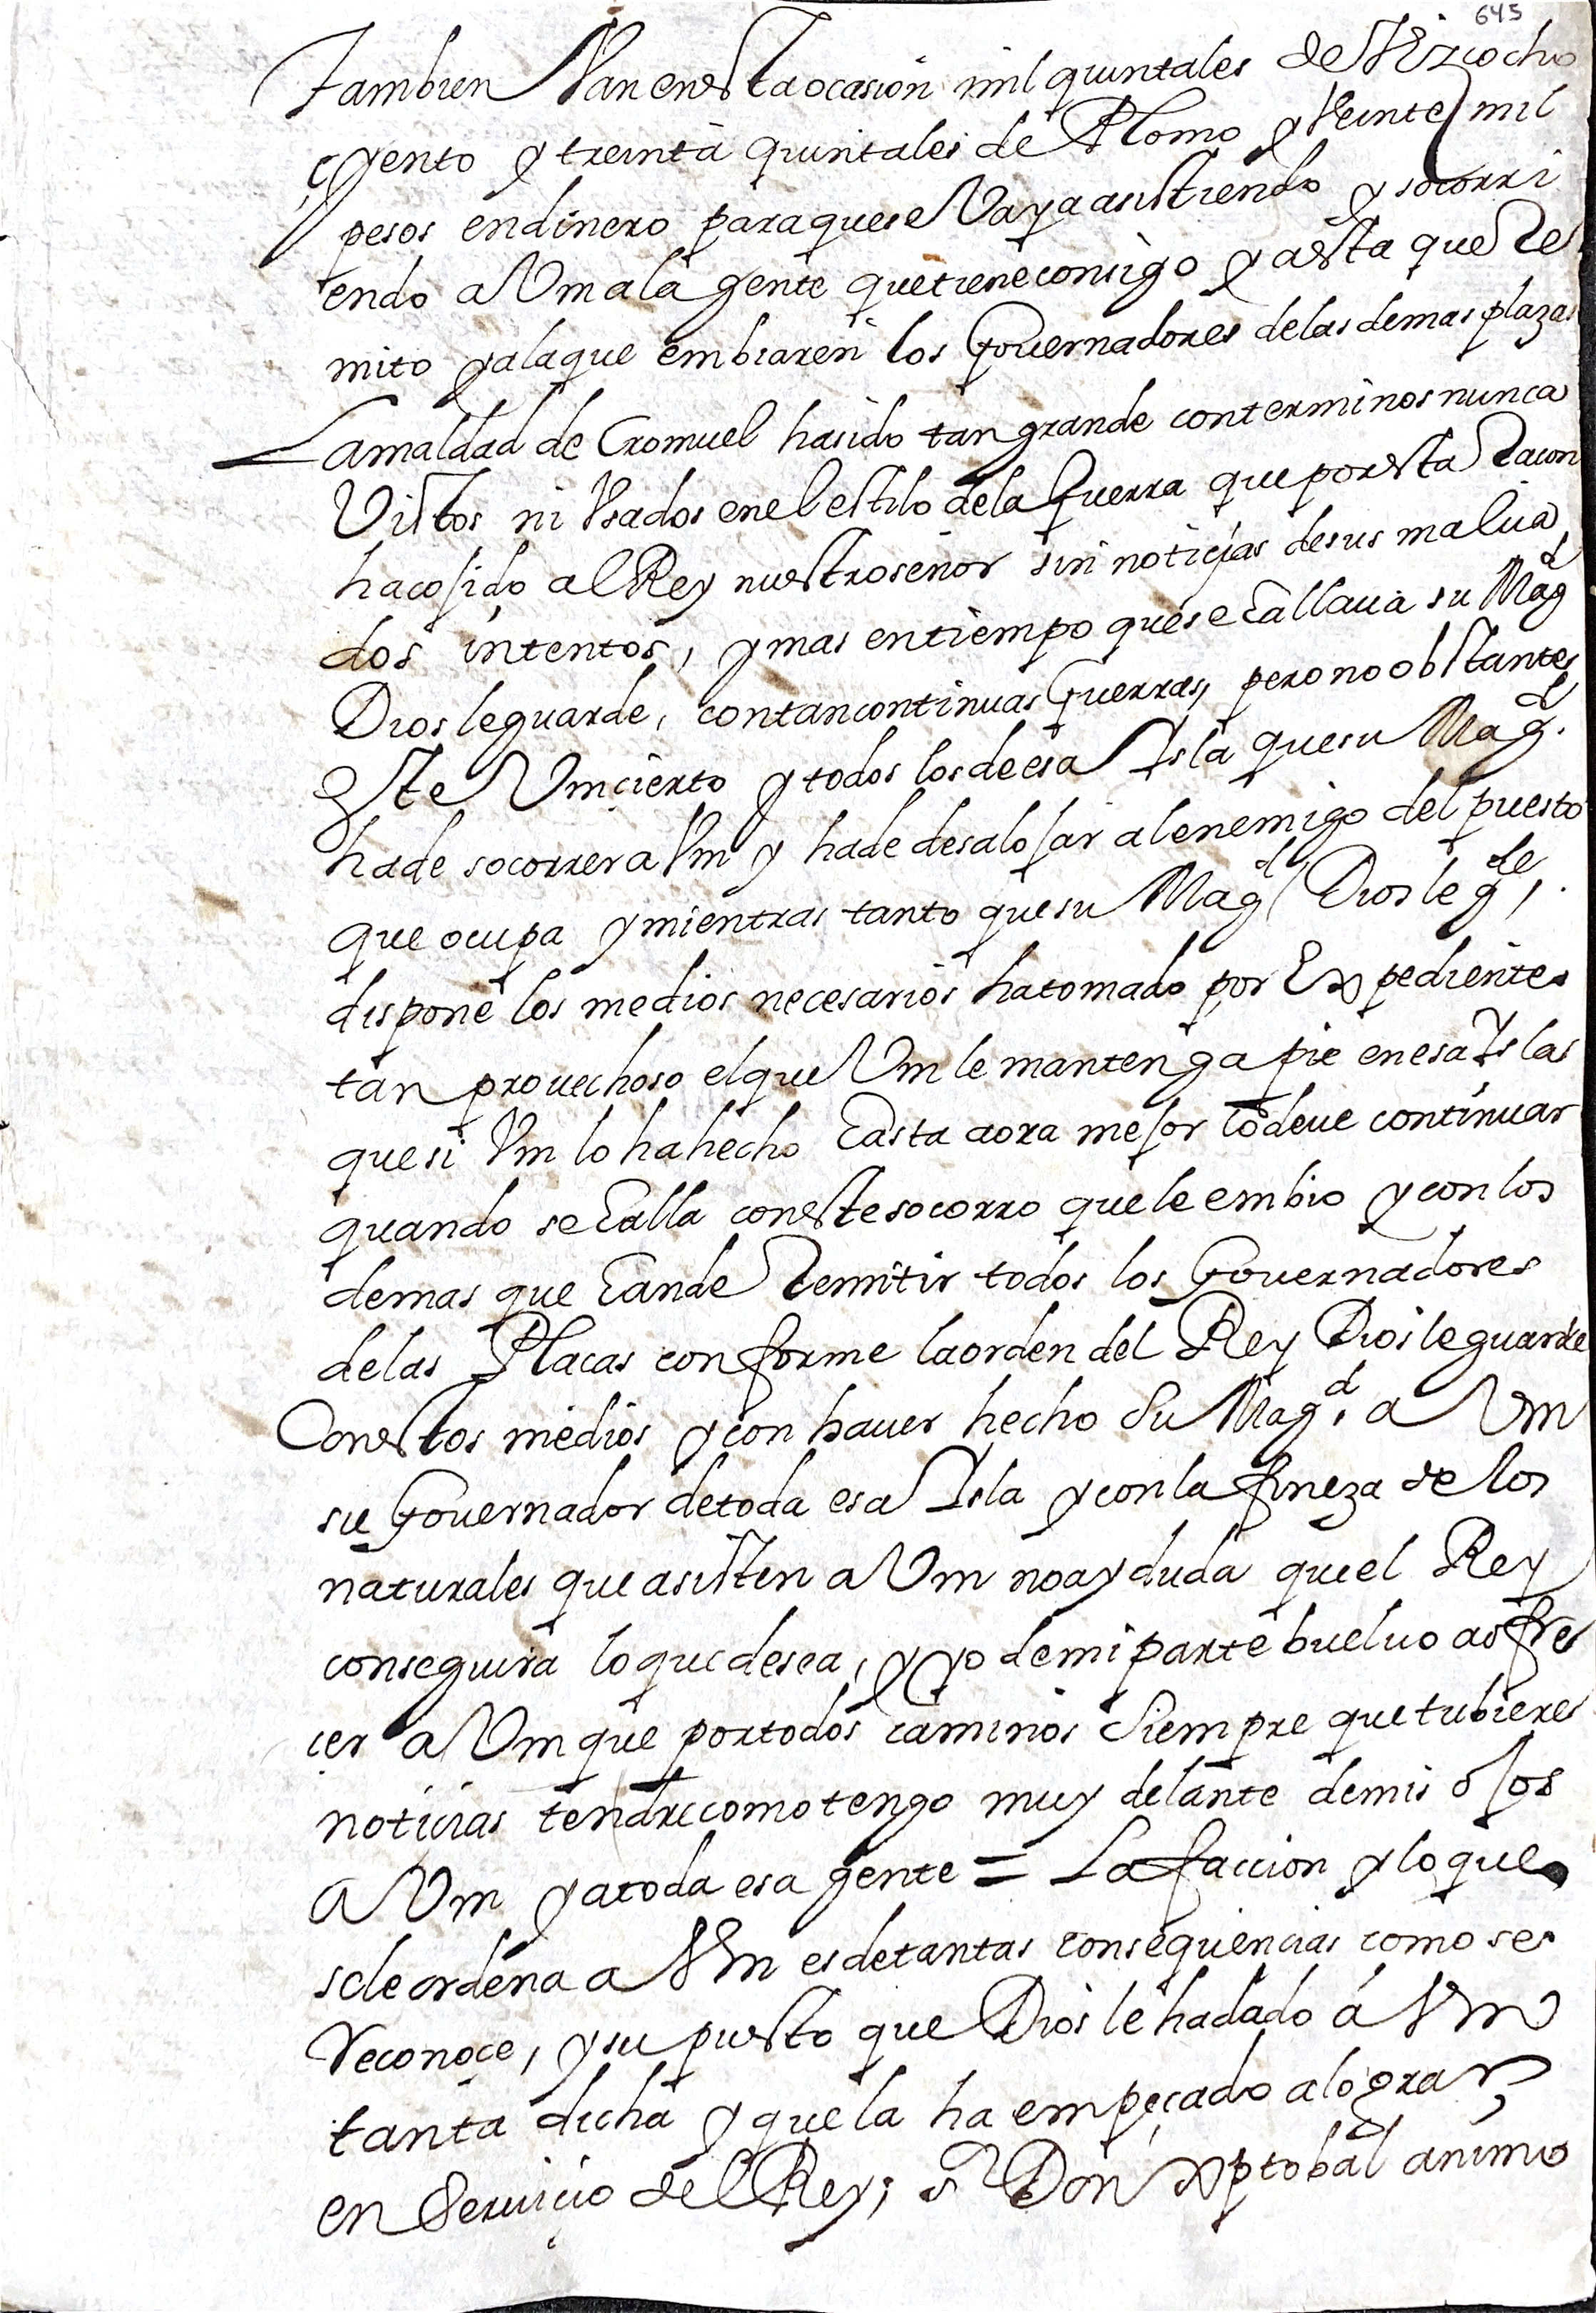 645
Tambien Van en esta ocasion mil quintales de Vizcocho
çiento y treinta quintales de Plomo y Veinte mil
pesos en dinero para que se Vaya asistiendo y socorri
endo a Vm a la gente que tiene consigo y a esta que Re
mito y a la que embiaren los Gouernadores de las demas plazas
La maldad de Cromuel ha sido tan grande con terminos nunca
Vistos ni Vsados en el estilo de la Guerra que por esta Racon
ha cojido al Rey nuestro señor sin noticias de sus malua
dos intentos, y mas en tiempo que se hallaua su Magd
Dios le guarde, con tan continuas Guerras, pero no obstante
Este Vm cierto y todos los de esa Isla que su Magd.
ha de socorrer a Vm y ha de desalojar al enemigo del puesto
que ocupa y mientras tanto que su Magd Dios le gde,
dispone los medios necesarios ha tomado por Expediente
tan prouechoso el que Vm le mantenga pie en esa Isla
que si Vm lo ha hecho hasta aora mejor lo deue continuar
quando se halla con este socorro que le embio y con los
demas que han de Remitir todos los Gouernadores
de las Placas conforme la orden del Rey Dios le guarde
Con estos medios y con hauer hecho Su Magd. a Vm
su Gouernador de toda esa Isla y con la fineza de los
naturales que asisten a Vm no ay duda que el Rey
conseguira lo que desea, y yo de mi parte bueluo a ofre
cer a Vm que por todos caminos Siempre que tubiere
noticias tendre como tengo muy delante de mis ojos
a Vm y a toda esa gente = La faccion y lo que
se le ordena a Vm es de tantas consequencias como se
Reconoce, y supuesto que Dios le ha dado á Vm
tanta dicha y que la ha empeçado a lograr
en Seruicio del Rey; sr Don Xptobal animo